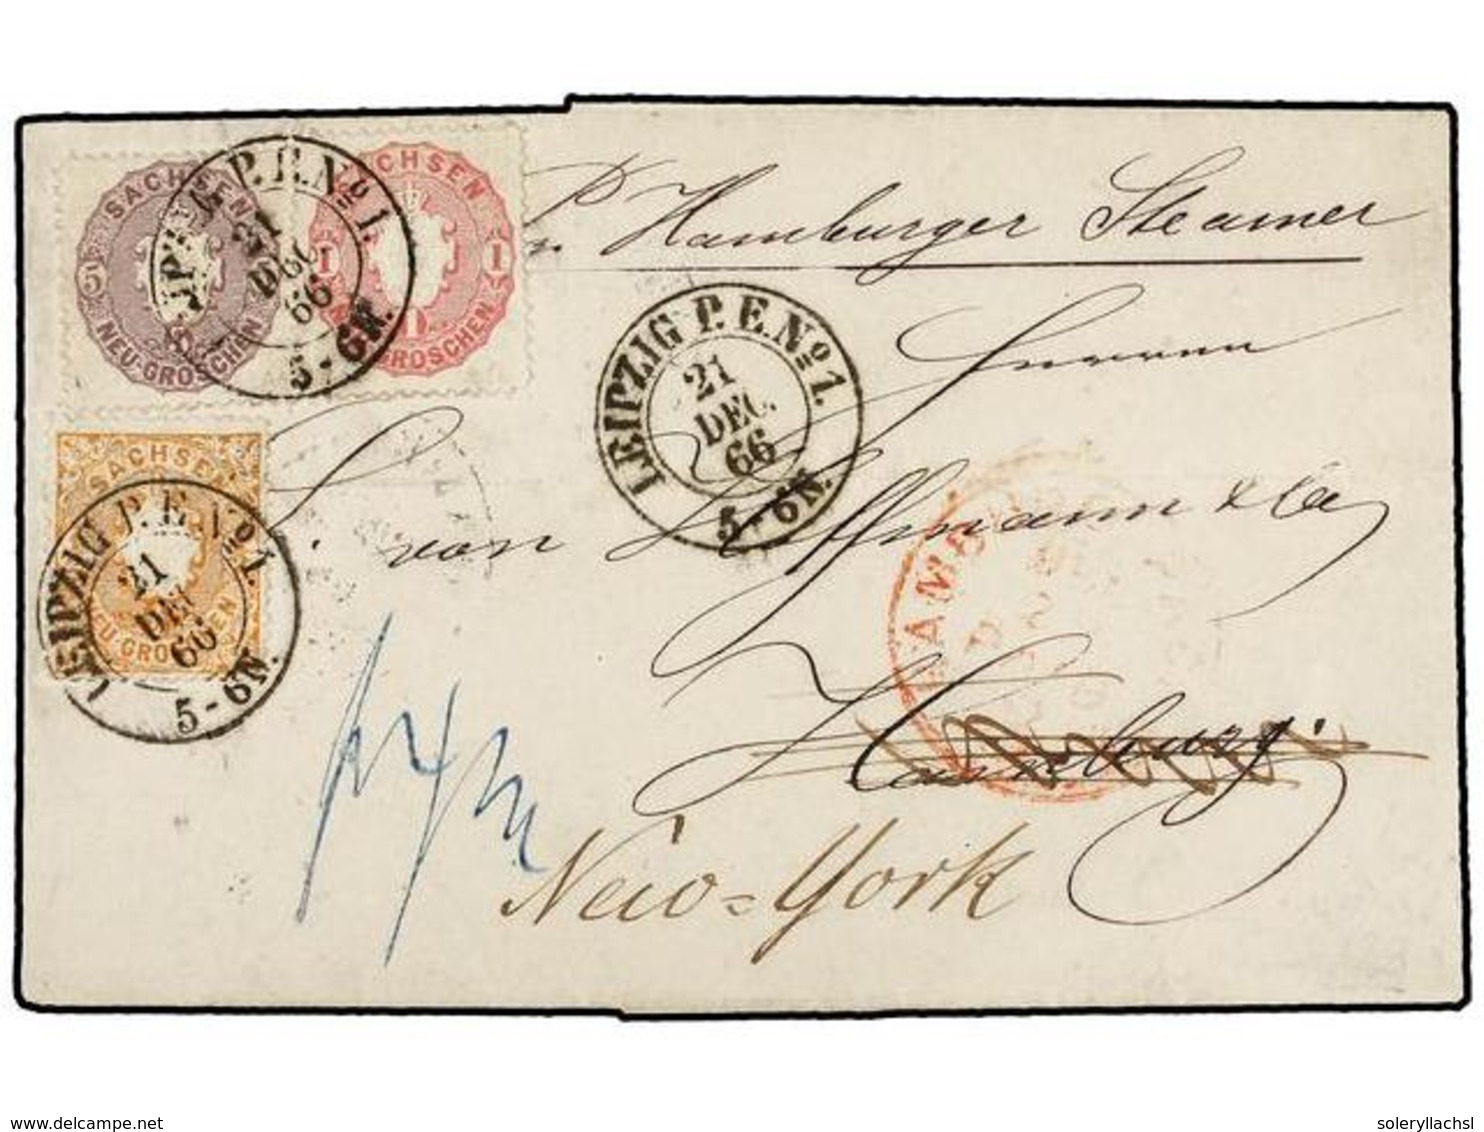 SACHSEN
5
NEU-GROSCHEN
SACHSEN
1 1
GROSCHEN
LEIPZIG P.E.No 1.
21
DEC.
66
5-6N.
pr Hamburger Steamer
LEIPZIG P.E.No 1.
21
DEC.
66
5-6N.
Herren
SACHSEN
NEU-GROSCHEN
LEIPZIG P.E.No 1.
21
DEC
66
5-6N.
von & Co
HAMB
Hamburg.
New=York
delcampe.net
soleryllachsl